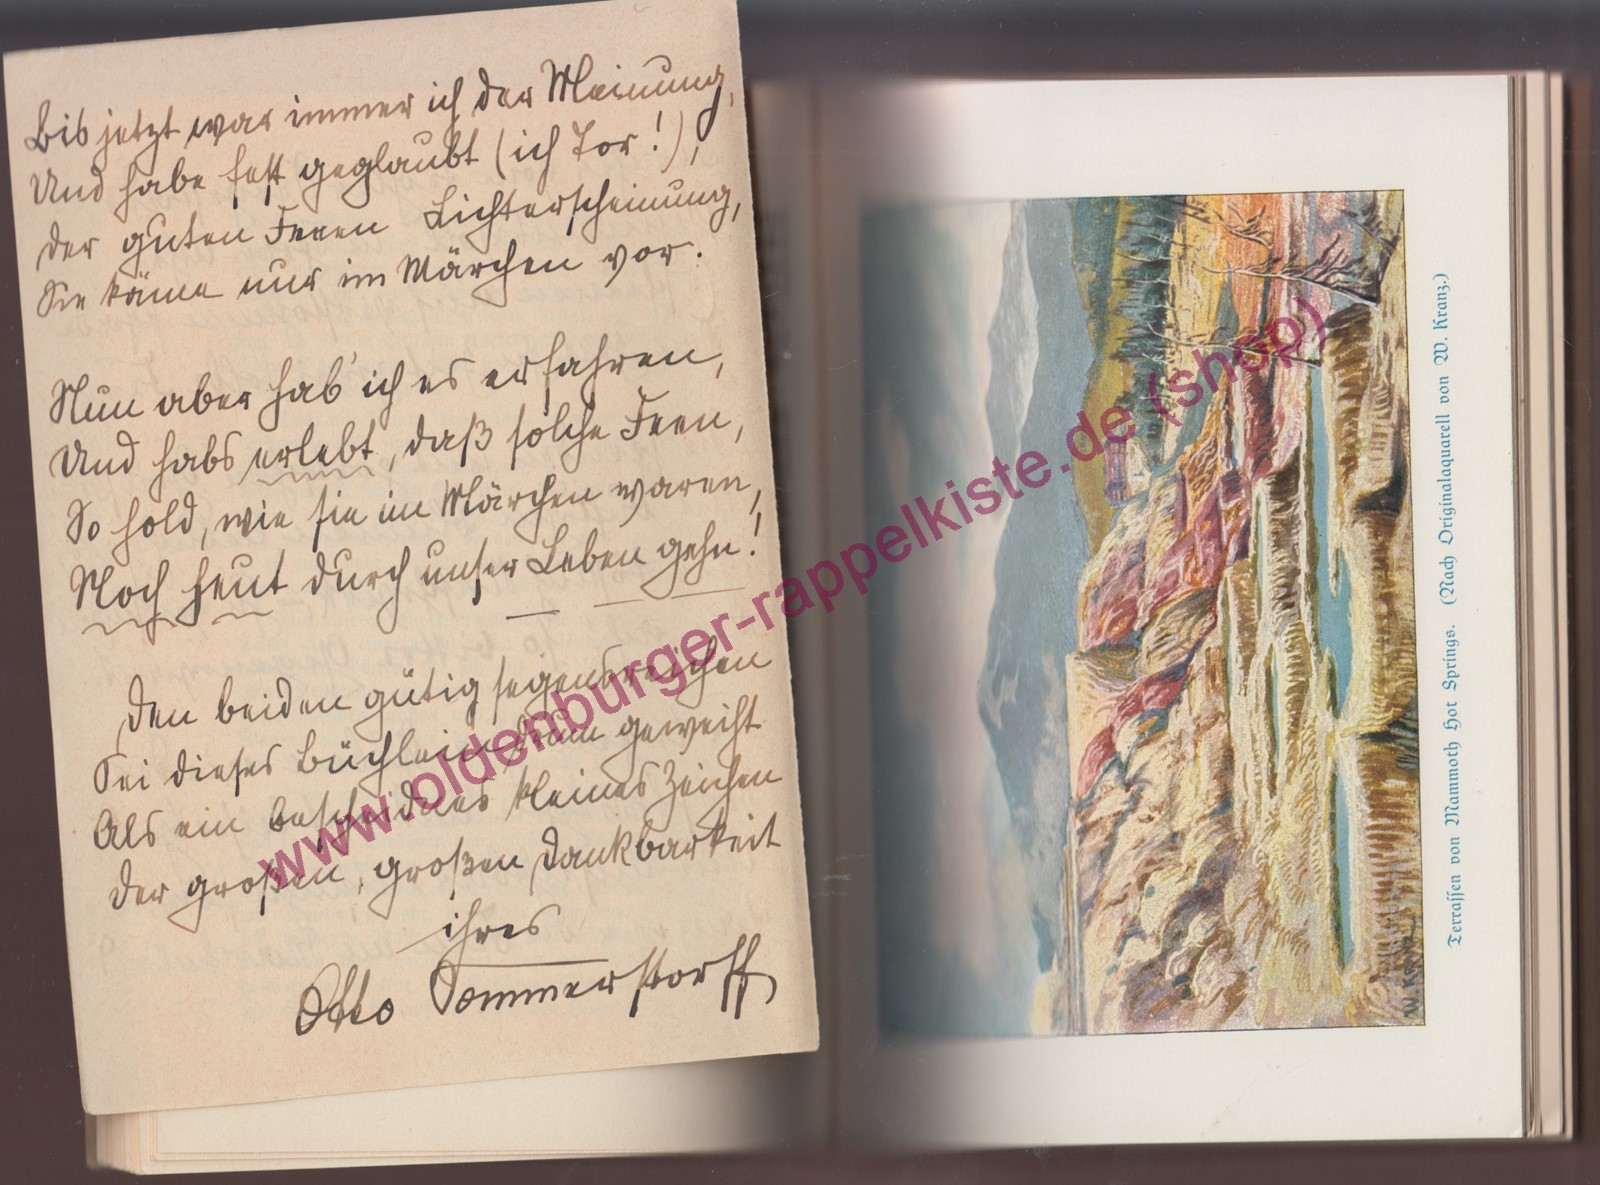 Bis jetzt war immer ich der Meinung,
Und habe fest geglaubt (ich Tor!),
Der guten Feeen Lichterscheinung,
Sie käme nur im Märchen vor.
Nun aber hab' ich es erfahren,
Und habs erlebt, daß solche Feen,
So hold, wie sie im Märchen waren,
Noch heut durch unser Leben gehn!
Den beiden gütig segensreichen
Sei dieses Büchlein drum geweiht
Als ein bescheidnes kleines Zeichen
Der großen, großen Dankbarkeit
ihres
Otto Sommerstorff
Terrassen von Mammoth Hot Springs. (Nach Originalaquarell von W. Kranz.)
W. KRANZ
www.oldenburger-rappelkiste.de (shop)